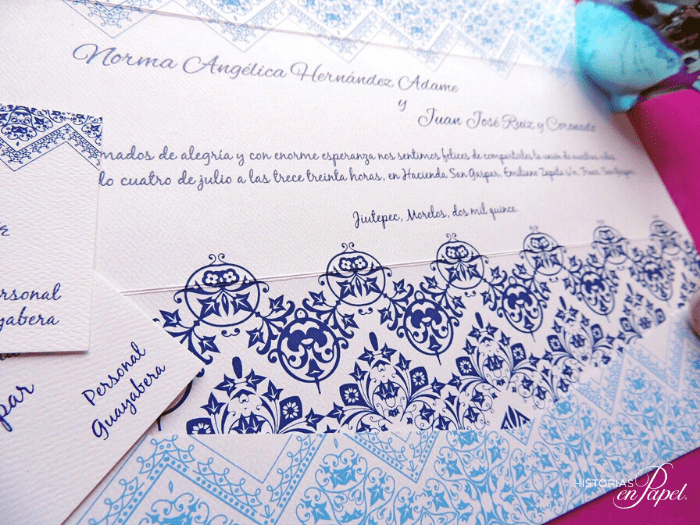 Norma Angélica Hernández Adame
y
Juan José Ruiz y Coronado
mados de alegría y con enorme esperanza nos sentimos felices de compartirles la unión de nuestras vidas
do cuatro de julio a las trece treinta horas, en Hacienda San Gaspar, Emiliano Zapata s/n, Fracc. San Gaspar
Jiutepec, Morelos, dos mil quince
ersonal
yabera
par
Personal
Guayabera
HISTORIAS
en Papel